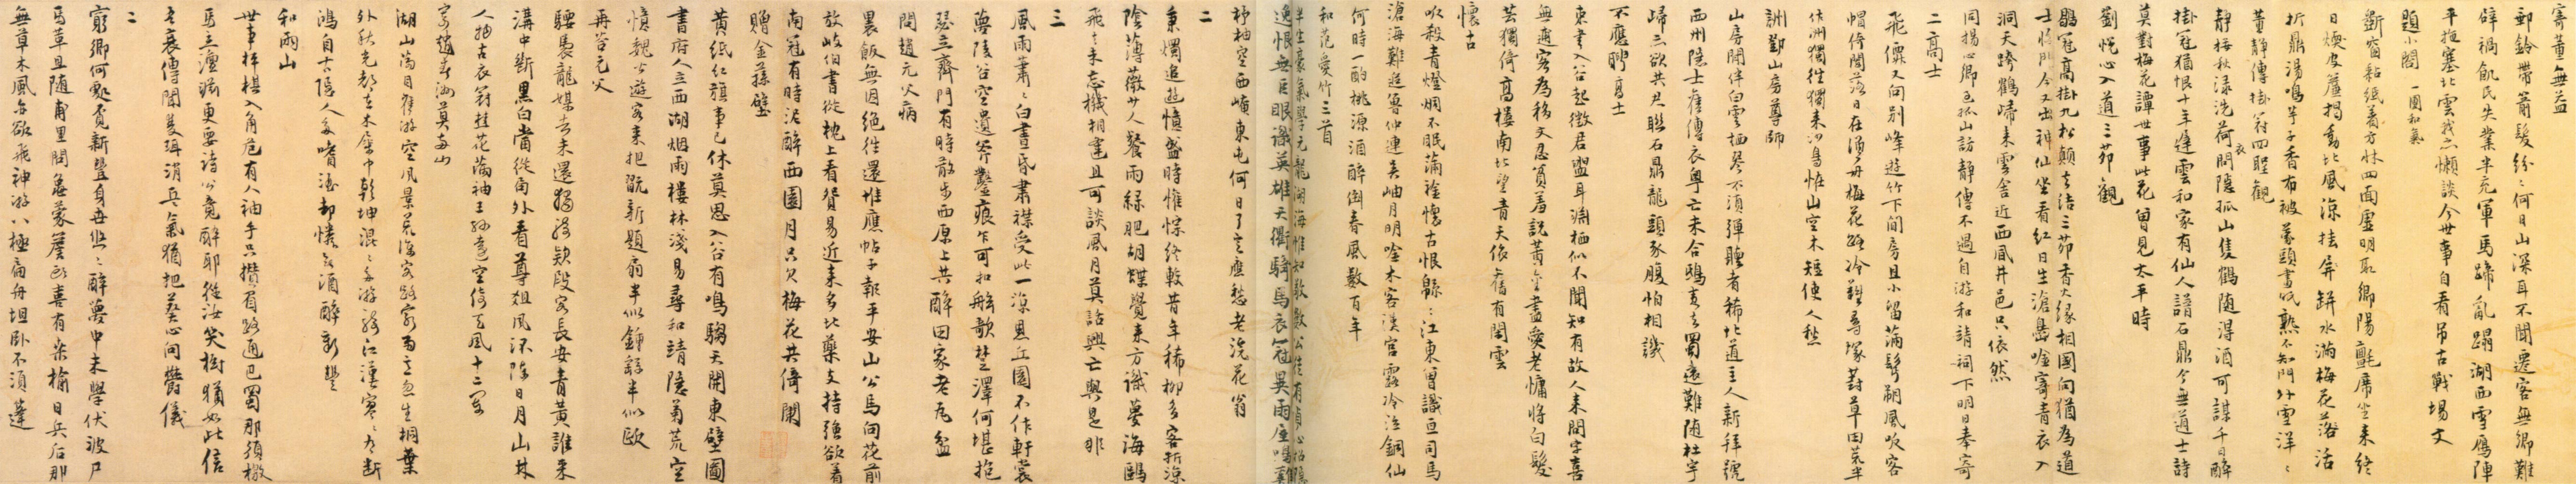 寄董無益
郵鈴帶箭髮紛紛何日山深耳不聞遷客無鄉難
辟禍飢民失業半充軍馬蹄亂蹋湖西雪鴈陣
平拖塞北雲我亦懶談今世事自看吊古戰場文
題小閣一團和氣
斷窗黏紙著方牀四面虛明取鄉陽氈席坐來終
日煖皮簾揭動北風涼挂屏缾水滿梅花落活
折鼎湯鳴芋子香布被蒙頭書味熟不知門外雪洋洋
董靜傳掛冠四聖觀
靜梅秋淥洗荷衣間隱孤山隻鶴隨得酒可謀千日醉
掛冠猶恨十年遲雲和家有仙人譜石鼎今無道士詩
莫對梅花譚世事此花曾見太平時
劉悅心入道三茆觀
鶡冠高掛九松顛去結三茆香火緣相國向猶為道
士將門今又出神仙坐看紅日生滄島唫寄青衣入
洞天跨鶴歸來雲舍近西風井邑只依然
同楊心卿過孤山訪靜傳不遇自游和靖祠下明日奉寄
二高士
飛儛又向別峰遊竹下閒房且小留蒲髩漸風吹客
帽倚闌落日在漁舟梅花路冷難尋塚葑草田荒半
佔洲獨往獨來鷗鳥恠山空木短使人愁
謝鄧山房尊師
山房閒伴白雲栖琴不須彈聽者稀北道主人新拜號
西州隱士舊傳衣粵亡未合鴟夷去蜀遠難隨杜宇
歸亦欲共君聯石鼎龍頭豕腹怕相譏
不應聘高士
束書入谷起徵君盥耳湖栖似不聞知有故人來問字喜
無逋客為移文忍貧羞說黃金盡愛老慵將白髮
芸獨倚高樓南北望青天依舊有閒雲
懷古
吹殺青燈烟不眠蒲襟懷古恨緜緜江東曾識亘司馬
滄海難逃魯仲連天岫月明唫木客漢宮露冷泣銅仙
何時一酌桃源酒醉倒春風數百年
和范愛竹三首
半生豪氣學元龍湖海惟知敬數公
逸恨無巨眼識英雄天衢騎馬衣冠異雨屋鳴雞
杼柚空西崦東屯何日了
應愁老浣花翁
二
秉燭追遊憶盛時惟悰終較昔年稀柳多客折涼
陰薄薇少人餐雨綠肥胡蝶覺來方識夢海鷗
飛去未忘機相逢且可談風月莫話興亡與是非
三
風雨蕭蕭白晝昏肅襟受此一涼恩丘園不作軒裳
夢陵谷空遺斧鑿痕乍可扣舷歌楚澤何堪抱
瑟立齊門有時散步西原上共醉田家老瓦盆
問趙元父病
裹飯無因絕往還堆鷹帖子報平安山公馬向花前
放岐伯書從枕上看貧易近來多北藥支持強欲著
南冠有時泥醉西園月只欠梅花共倚闌
贈金蓀壁
黃紙紅旗事已休莫思入谷有鳴騶天開東壁圖
書府人立西湖烟雨樓林淺易尋和靖隱菊荒空
憶魏公遊客來把翫新題扇半似鍾繇半似歐
再答元父
騕褭龍媒去未還獨騎欵段客長安青黃誰采
溝中斷黑白當從局外看尊俎風流陳日月山林
人物古衣冠桂花滿袖王孫遠空倚天風十二闌
寄趙春洲莫兩山
湖山滿目舊游空風景荒涼客路窮雨意忽生桐葉
外秋光都在木犀中乾坤混混多游騎江漢寥寥有斷
鴻自古隱人多嗜酒却憐無酒醉新豐
和兩山
世事枰棋入角危有人袖手只攢眉路通巴蜀那須檄
馬立澶淵更要詩公竟醉耶從汝笑樹猶如此信
吾衰傳聞隻珥消兵氣猶把葵心向鬱儀
二
窮鄉何處覓新豐身世悠悠醉夢中未學伏波尸
馬革且隨甫里閉龜蒙簷歌喜有桑榆日兵后那
無草木風亦欲飛神游八極扁舟坦臥不須蓬